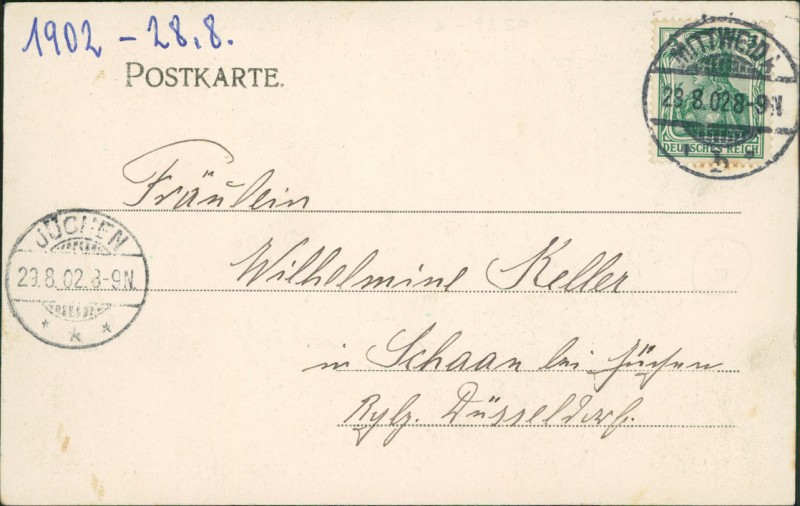 1902 - 28.8.
POSTKARTE.
MITTWEIDA
28.8.02 8-9N
b
DEUTSCHES REICH
Fräulein
JÜCHEN
29.8.02.8-9N.
Wilhelmine Keller
in Schaan bei Jüchen
Düsseldorf.